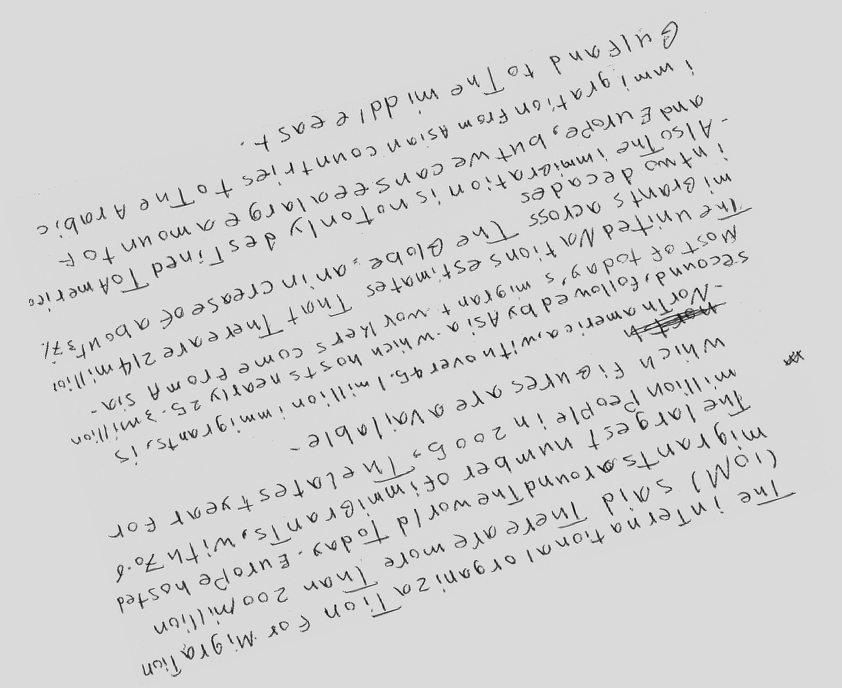 The internaTional organizaTion For MigraTion
(IOM) said There are more Than 200 million
migrants around The world Today. Europe hosted
The largest number of immiGrants, with 70.6
million People in 2005, The latest year For
which Figures are available -
- NorTh america, with over 45.1 million immigrants, is
secound, followed by Asia. which hosts nearly 25.3 million
Most of today's migrant workers come From A sia -
The United Nations estimates That There are 214 million
miGrants across The Globe, an in crease of about 37%
in two decades
- Also The immigration is not only desTined To America
and Europe, but we can see a large amoun t oF
immigration From Asian countries to The Arabic
Gulf and to The middle east.